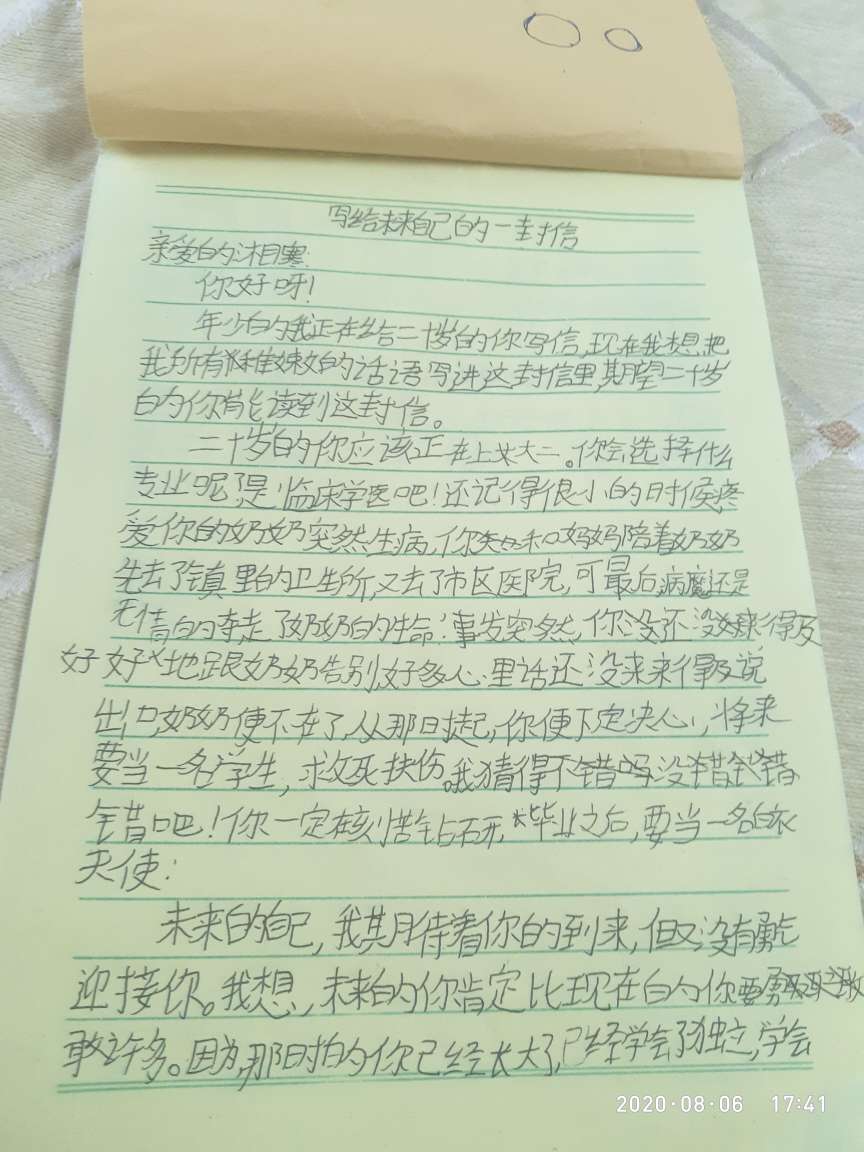 写给未来自己的一封信
亲爱的湘寒:
你好呀!
年少的我正在给二十岁的你写信,现在我想把
我所有稚嫩的话语写进这封信里,期望二十岁
的你能读到这封信。
二十岁的你应该正在上大二。你会选择什么
专业呢?是临床学医吧!还记得很小的时候,疼
爱你的奶奶突然生病,你和妈妈陪着奶奶
先去了镇里的卫生所,又去了市区医院,可最后,病魔还是
无情的夺走了奶奶的生命!事发突然,你还没来得及
好好地跟奶奶告别,好多心里话还没来得及说
出口,奶奶便不在了,从那日起,你便下定决心,将来
要当一名学生,求死扶伤。我猜得不错吗没错
错吧!你一定在刻苦钻研,毕业之后,要当一名白衣
天使:
未来的自己,我期待着你的到来,但又没有勇气
迎接你。我想,未来的你肯定比现在的你要勇
敢许多。因为,那时的你已经长大了,已经学会了独立,学会
2020·08·06 17:41